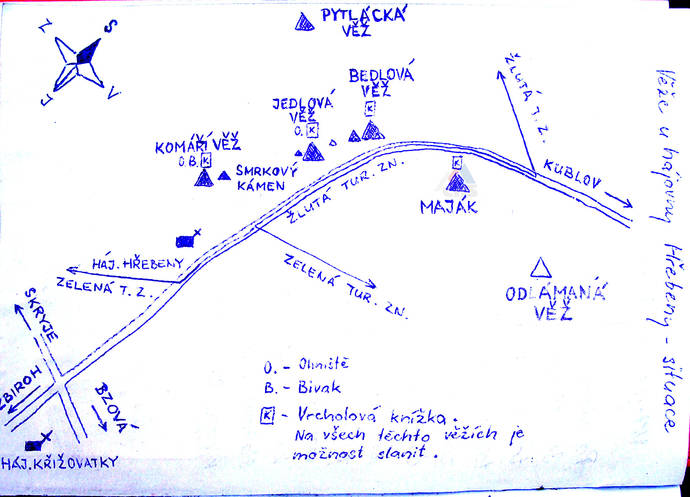 PYTLÁCKÁ
VĚŽ
S
Z
V
J
BEDLOVÁ
VĚŽ
K
JEDLOVÁ
VĚŽ
O. K
KOMÁŘÍ VĚŽ
O.B. K
SMRKOVÝ
KÁMEN
ŽLUTÁ T. Z.
KUBLOV
K
MAJÁK
ŽLUTÁ TUR. ZN.
HÁJ. HŘEBENY
ZELENÁ T. Z.
ZELENÁ TUR. ZN.
ODLÁMANÁ
VĚŽ
SKRYJE
ZBIROH
BZOVÁ
HÁJ. KŘIŽOVATKY
O. - Ohniště
B. - Bivak
K - Vrcholová knížka.
Na všech těchto věžích je
možnost slanit.
Věže u hájovny Hřebeny - situace